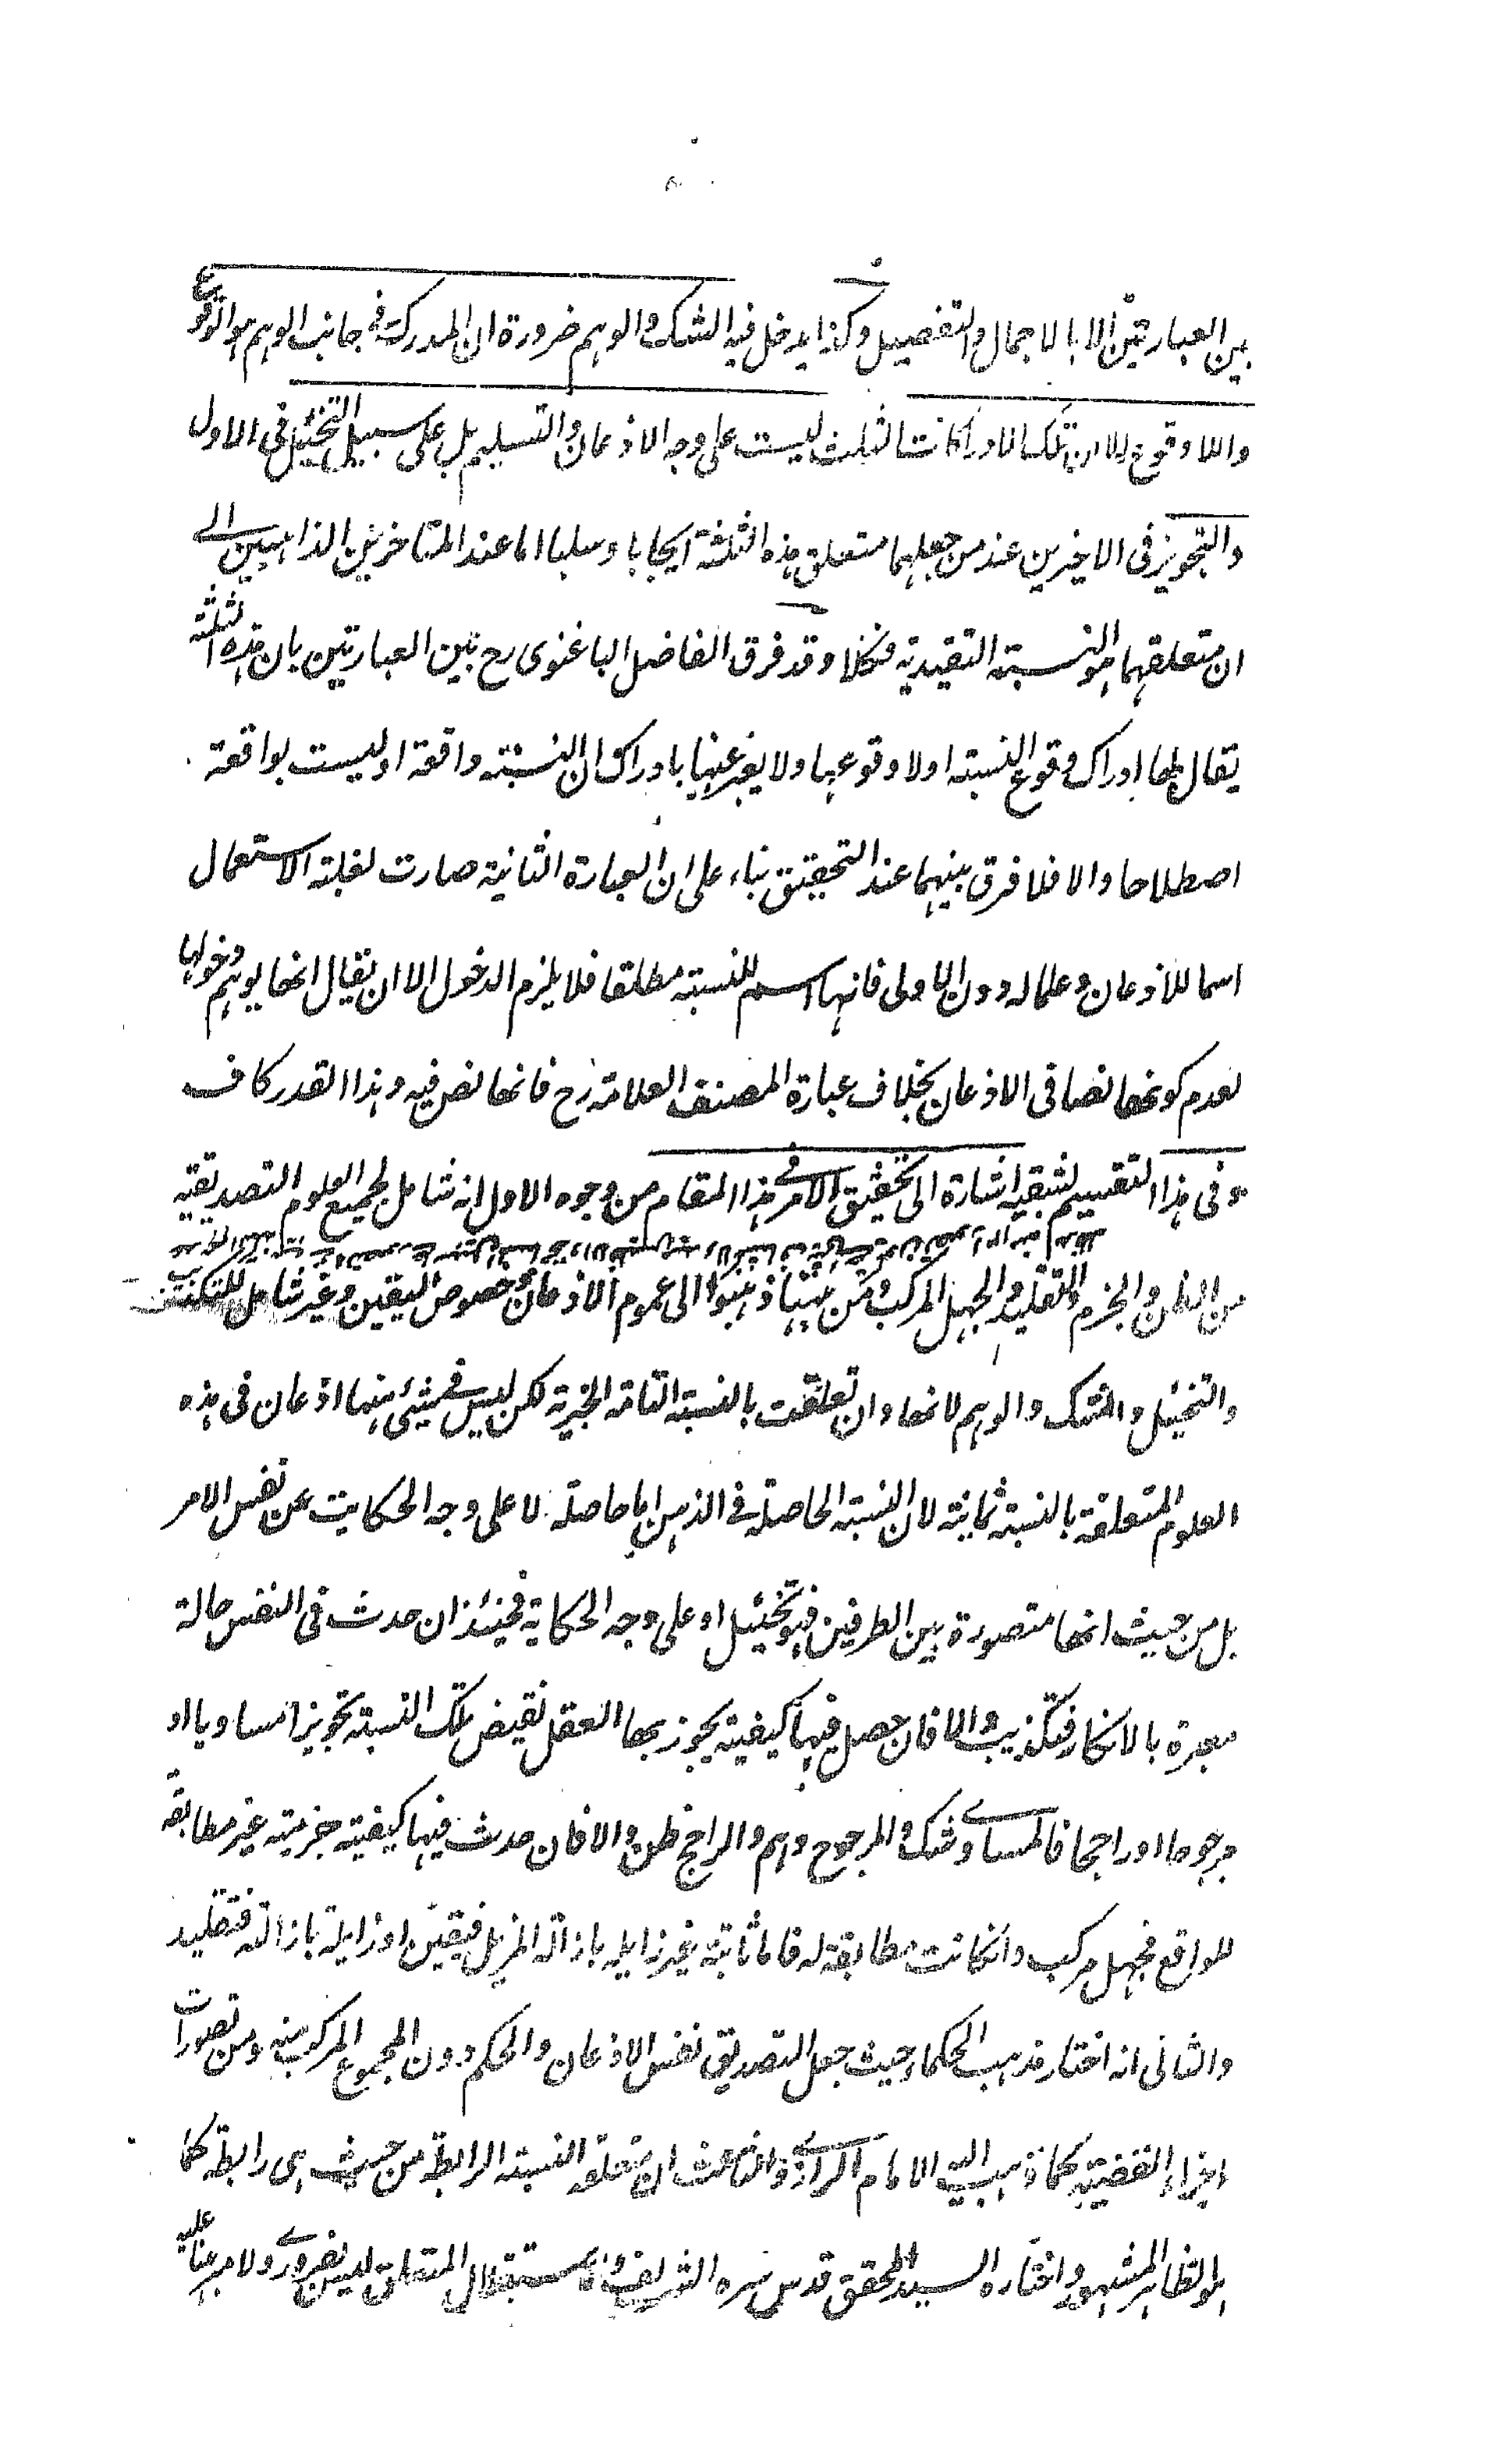 بين العبارتين الا بالاجمال والتفصيل وكذا يدخل فيه الشك والوهم ضرورة ان المدرك في جانب الوهم هو الوقوع
واللا وقوع الا ان تلك الادراكات الثلث ليست على وجه الاذعان والتسليم بل على سبيل التخئيل في الاول
والتجويز في الاخيرين عند من جعلهما متعلق هذه الثلثة ايجابا وسلبا اما عند المتاخرين الذاهبين الى
ان متعلقهما هو النسبته التقيدية فكلا وقد فرق الفاضل الباغنوى رح بين العبارتين بان هذه الثلثة
يقال لها ادراك وقوع النسبته اولا وقوعها ولا يعبر عنها بادراك ان النسبته واقعة او ليست بواقعة
اصطلاحا والا فلا فرق بينهما عند التحقيق بناء على ان العبارة الثانية صارت لغلبته الاستعمال
اسما للاذعان وعلما له دون الاولى فانها اسم للنسبته مطلقا فلا يلزم الدخول الا ان يقال انها يوهم دخولها
لعدم كونها نصا في الاذعان بخلاف عبارة المصنف العلامة رح فانها نص فيه وهذا القدر كاف
وفى هذا التقسيم لشقيه اشارة الى تحقيق الامر في هذا المقام من وجوه الاول انه شامل لجميع العلوم التصديقية
من الظن والجزم والتقليد والجهل المركب ومن ههنا ذهبوا الى عموم الاذعان وخصوص اليقين وغير شامل للتكذيب
والتخئيل والشك والوهم لانها وان تعلقت بالنسبته التامة الخبرية لكن ليس في شيئ منها اذعان فى هذه
العلوم المتعلقة بالنسبته ثمانية لان النسبته الحاصلة في الذهن اما حاصلة لا على وجه الحكايت عن نفس الامر
بل من حيث انها متصورة بين الطرفين فهو تخئيل او على وجه الحكاية فحينئذ ان حدث فى النفس حالة
معبرة بالانكار فتكذيب والا فان حصل فيها كيفية يجوز بها العقل نقيض تلك النسبته تجويزا مساويا او
مرجوحا او راجحا فالمساوے شك والمرجوح وهم والراجح ظن والا فان حدث فيها كيفيته جزميته غير مطابقة
للواقع فجهل مركب وانكانت مطابقة له فاما ثابتة غير زايله بازالة المزيل فيقين او زايلة بازالته فتقليد
والثانى انه اختار مذهب الحكماء حيث جعل التصديق نفس الاذعان والحكم دون المجموع المركب منه ومن تصورات
اجزاء القضيته كما ذهب اليه الامام الرازے والثالث ان متعلقه النسبته الرابطة من حيث هى رابطة كما
هو الظاهر المشهور واختاره السيد المحقق قدس سره الشريف واستقلال المتعلق ليس بضرورے ولا مبرهنا عليه